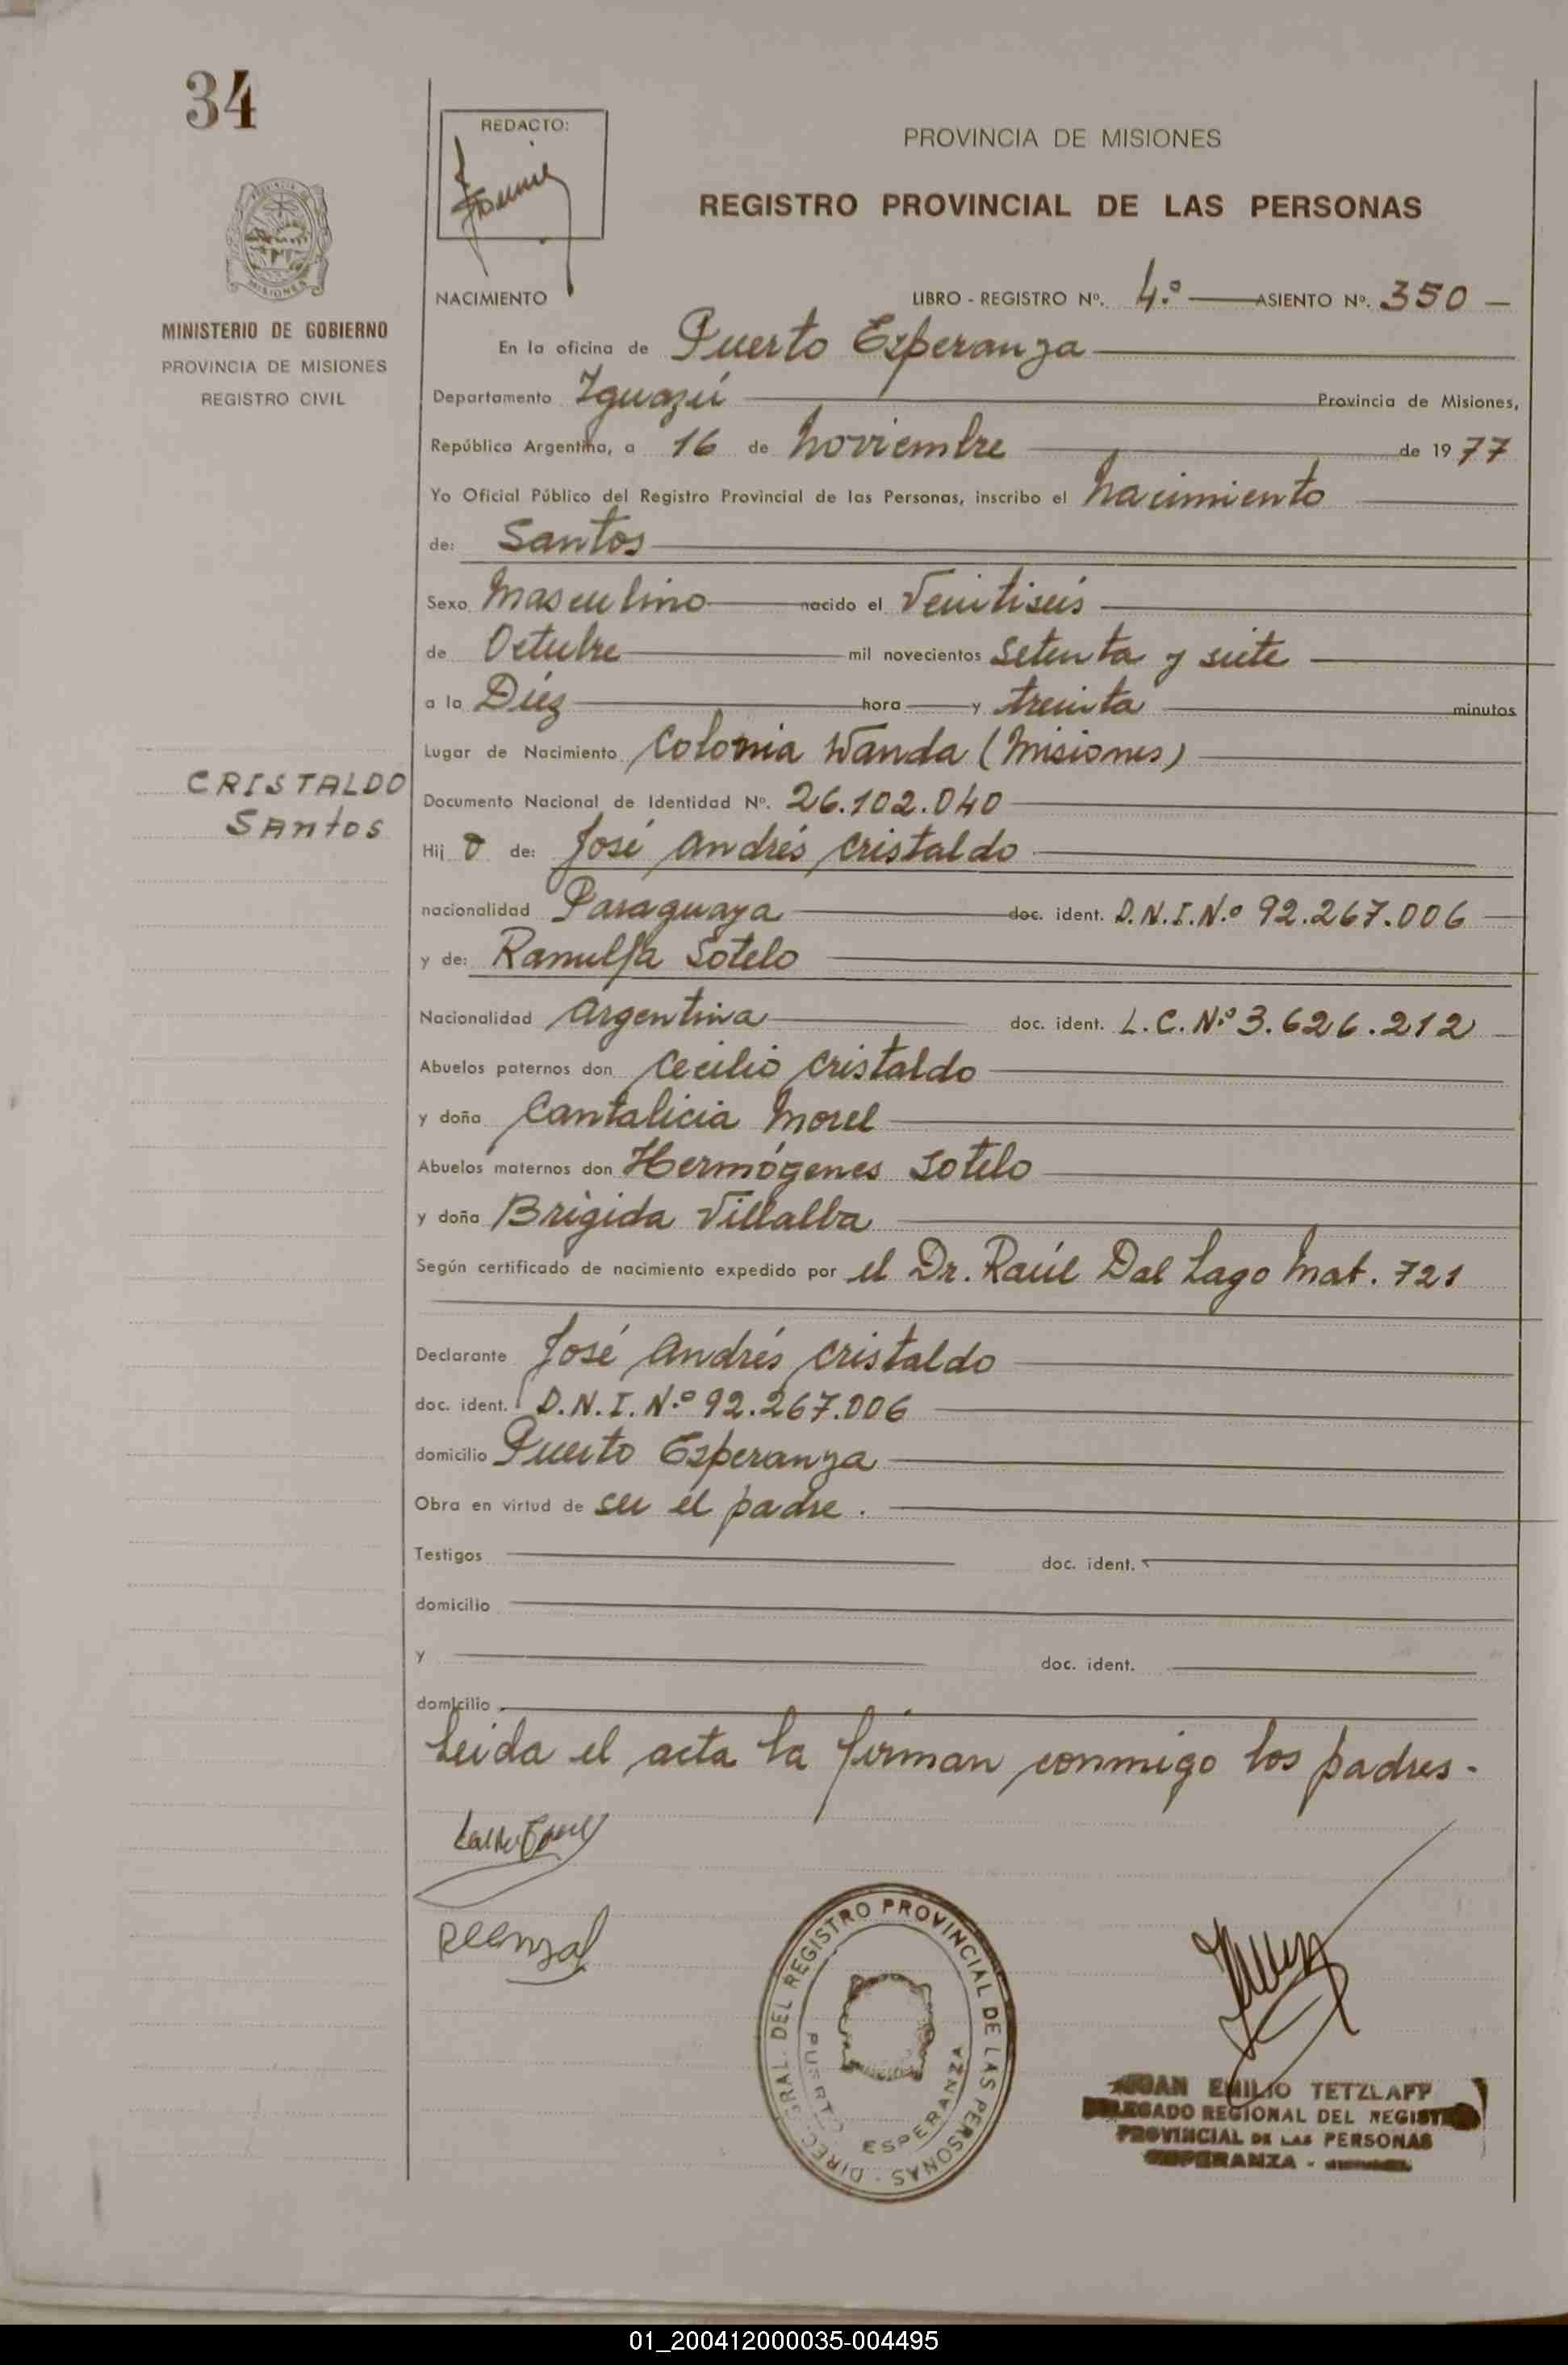 34
REDACTO:
PROVINCIA DE MISIONES
REGISTRO PROVINCIAL DE LAS PERSONAS
MISIONES
MINISTERIO DE GOBIERNO
PROVINCIA DE MISIONES
REGISTRO CIVIL
NACIMIENTO LIBRO - REGISTRO Nº. 4.º ASIENTO Nº. 350
En la oficina de Puerto Esperanza
Departamento Iguazú Provincia de Misiones,
República Argentina, a 16 de Noviembre de 1977
Yo Oficial Público del Registro Provincial de las Personas, inscribo el Nacimiento
de: Santos
Sexo Masculino nacido el Veintiseis
de Octubre mil novecientos Setenta y siete
a la Diéz hora y treinta minutos
Lugar de Nacimiento Colonia Wanda (Misiones)
CRISTALDO
Santos
Documento Nacional de Identidad Nº. 26.102.040
Hij o de: José Andrés Cristaldo
nacionalidad Paraguaya doc. ident. D.N.I.N.º 92.267.006
y de: Ramulfa Sotelo
Nacionalidad Argentina doc. ident. L.C.Nº 3.626.212
Abuelos paternos don Cecilio Cristaldo
y doña Cantalicia Morel
Abuelos maternos don Hermógenes Sotelo
y doña Brígida Villalba
Según certificado de nacimiento expedido por el Dr. Raúl Dal Lago Mat. 721
Declarante José Andrés Cristaldo
doc. ident. D.N.I.N.º 92.267.006
domicilio Puerto Esperanza
Obra en virtud de ser el padre.
Testigos doc. ident.
domicilio
y doc. ident.
domicilio
Leida el acta la firman conmigo los padres.
DIREC. GRAL. DEL REGISTRO PROVINCIAL DE LAS PERSONAS
PUERTO ESPERANZA
JUAN EMILIO TETZLAFF
DELEGADO REGIONAL DEL REGISTRO
PROVINCIAL DE LAS PERSONAS
ESPERANZA -
01_200412000035-004495